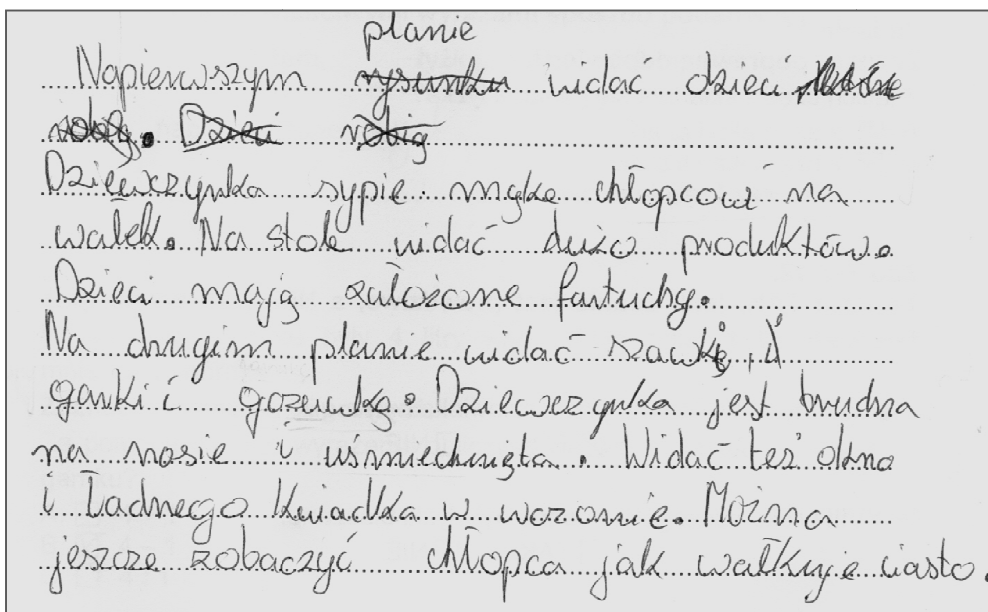 planie
Napierwszym rysunku widać dzieci które
robią. Dzieci robią
Dziewczynka sypie mąkę chłopcowi na
wałek. Na stole widać dużo produktów.
Dzieci mają założone fartuchy.
Na drugim planie widać szawkę, i
garki i gozewkę. Dziewczynka jest brudna
na nosie i uśmiechnięta. Widać też okno
i Ładnego kwiadka w wazonie. Można
jeszcze zobaczyć chłopca jak wałkuje ciasto.